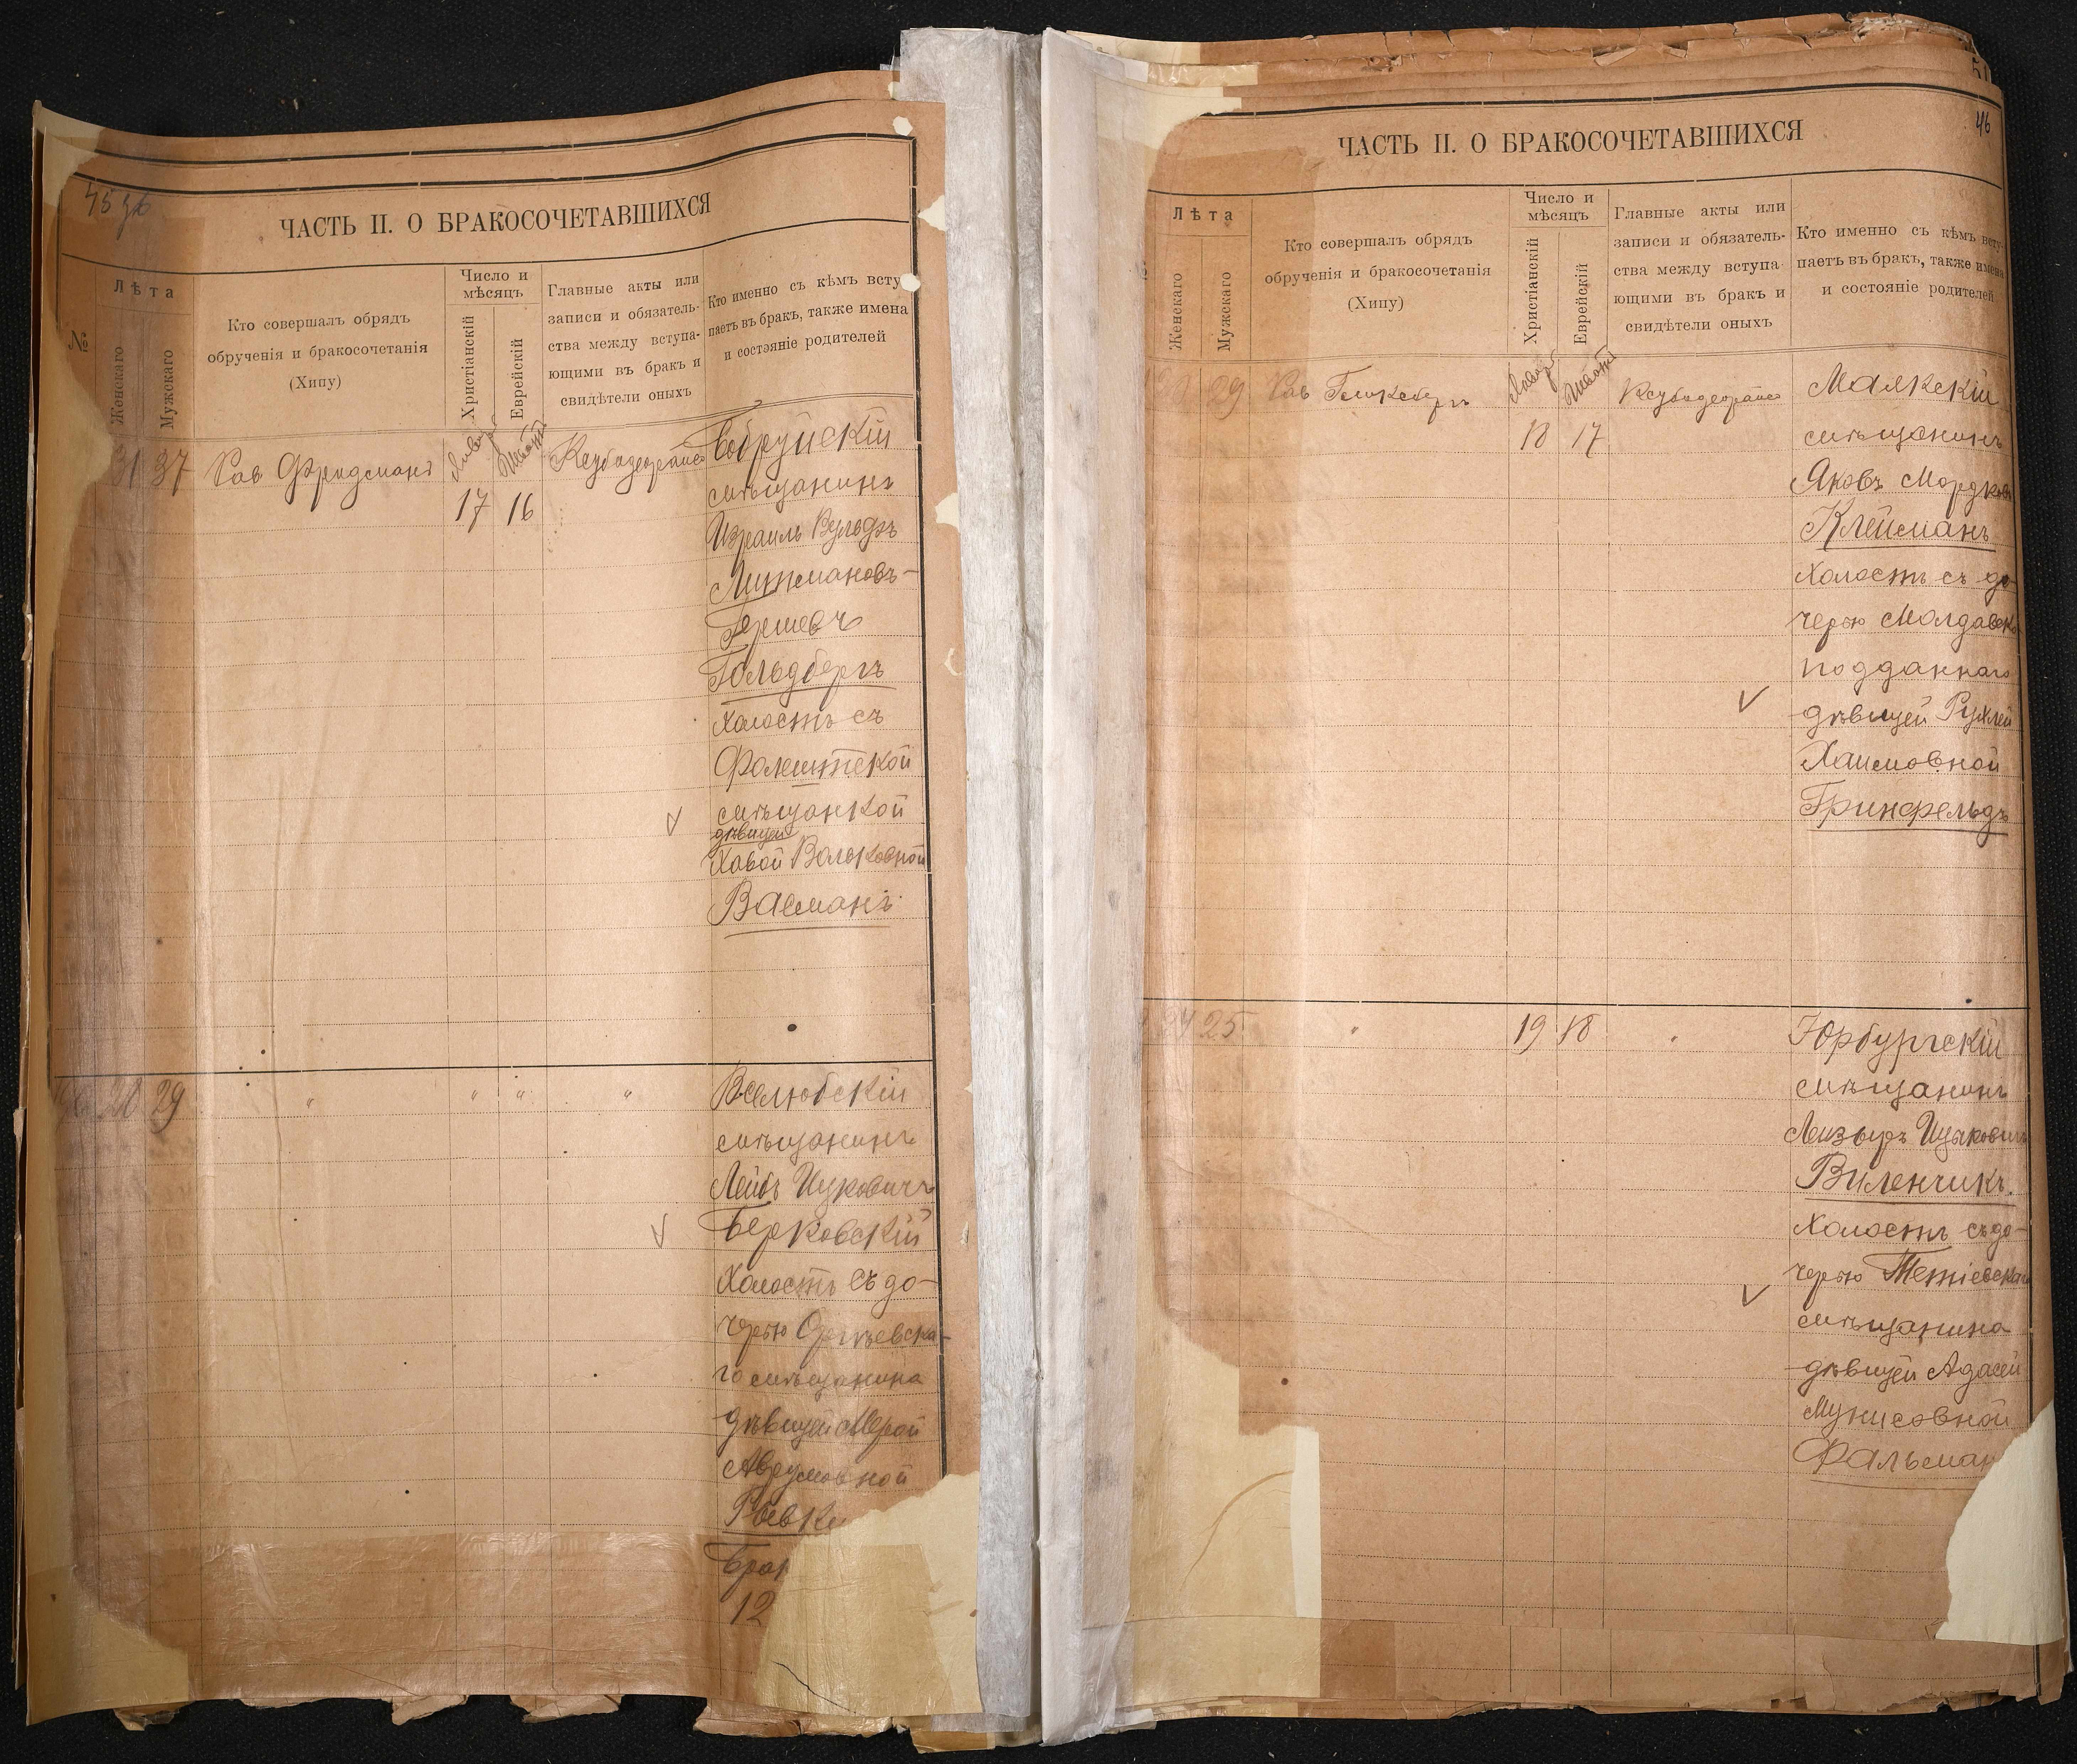 45 зв
ЧАСТЬ II. О БРАКОСОЧЕТАВШИХСЯ
№
Лѣта
Женскаго
Мужскаго
Кто совершалъ обрядъ
обрученія и бракосочетанія
(Хипу)
Число и
мѣсяцъ
Христіанскій
Еврейскій
Главные акты или
записи и обязатель-
ства между вступа-
ющими въ бракъ и
свидѣтели оныхъ
Кто именно съ кѣмъ всту
паетъ въ бракъ, также имена
и состояніе родителей
31 37 Рав Фридманъ
17 16
Бобруйскій
мѣщанинъ
Израиль Вульфъ
Литмановъ-
Гершевъ
Гольдбергъ
холостъ съ
Фалештской
мѣщанкой
дѣвицей
Хавой Вольковной
Васманъ
20 29 " " " "
Вселюбскій
мѣщанинъ
Лейбъ Ицковичъ
Берковскій
холостъ съ до-
черью Оргѣевска-
го мѣщанина
дѣвицей Мерой
Аврумовной
12
51
46
ЧАСТЬ II. О БРАКОСОЧЕТАВШИХСЯ
Лѣта
Женскаго
Мужскаго
Кто совершалъ обрядъ
обрученія и бракосочетанія
(Хипу)
Число и
мѣсяцъ
Христіанскій
Еврейскій
Главные акты или
записи и обязатель-
ства между вступа
ющими въ бракъ и
свидѣтели оныхъ
Кто именно съ кѣмъ всту-
паетъ въ бракъ, также имена
и состояніе родителей
29 Рав
18 17
Маякскій
мѣщанинъ
Яковъ Мордков
Клейманъ
холостъ съ до-
черью Молдавско
подданнаго
дѣвицей Рухлей
Хаимовной
Гринфельдъ
24 25 " 19 18 "
Юрбургскій
мѣщанинъ
Лейзеръ Ицковичъ
Виленчикъ.
холостъ съ до-
черью Тетіевскаго
мѣщанина
дѣвицей Адасей
Мунисовной
Фальман